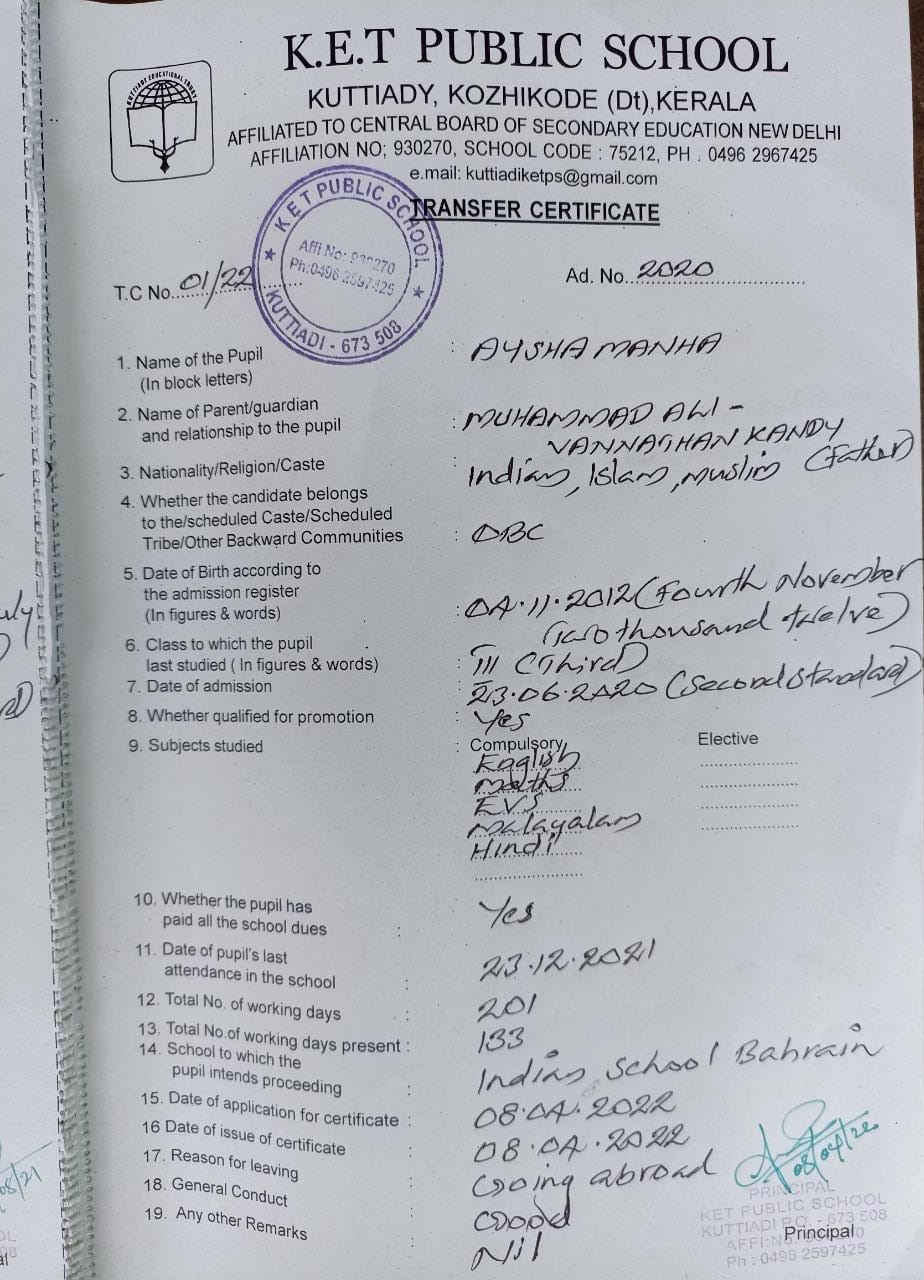 K.E.T PUBLIC SCHOOL
KUTTIADY EDUCATIONAL TRUST
KUTTIADY, KOZHIKODE (Dt),KERALA
AFFILIATED TO CENTRAL BOARD OF SECONDARY EDUCATION NEW DELHI
AFFILIATION NO; 930270, SCHOOL CODE : 75212, PH . 0496 2967425
e.mail: kuttiadiketps@gmail.com
TRANSFER CERTIFICATE
K.E.T PUBLIC SCHOOL
Affi No: 930270
Ph:0496 2597425
KUTTIADI - 673 508
T.C No. 01/22
Ad. No. 2020
1. Name of the Pupil : AYSHA MANHA
(In block letters)
2. Name of Parent/guardian : MUHAMMAD ALI -
and relationship to the pupil VANNATHAN KANDY
(Father)
3. Nationality/Religion/Caste : Indian, Islam, Muslim
4. Whether the candidate belongs
to the/scheduled Caste/Scheduled
Tribe/Other Backward Communities : OBC
5. Date of Birth according to
the admission register
(In figures & words) : 04.11.2012 (Fourth November
Two thousand twelve)
6. Class to which the pupil
last studied ( In figures & words) : III (Third)
7. Date of admission : 23.06.2020 (Second Standard)
8. Whether qualified for promotion : Yes
9. Subjects studied : Compulsory Elective
English
Maths
EVS
Malayalam
Hindi
10. Whether the pupil has
paid all the school dues : Yes
11. Date of pupil's last
attendance in the school : 23.12.2021
12. Total No. of working days : 201
13. Total No.of working days present : 133
14. School to which the
pupil intends proceeding : Indian School Bahrain
15. Date of application for certificate : 08.04.2022
16 Date of issue of certificate : 08.04.2022
17. Reason for leaving : Going abroad
18. General Conduct : Good
19. Any other Remarks : Nil
08/04/22
PRINCIPAL
KET PUBLIC SCHOOL
KUTTIADI P.O. - 673 508
Principal
Ph : 0496 2597425